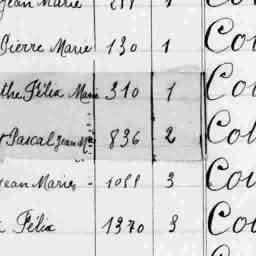 Jean Marie 211 1
Pierre Marie 130 1 Co
the Félix Marie 310 1 Co
Pascal Jean Mie 836 2 Co
Jean Marie - 1011 3 Cou
Félix 1370 3 Co